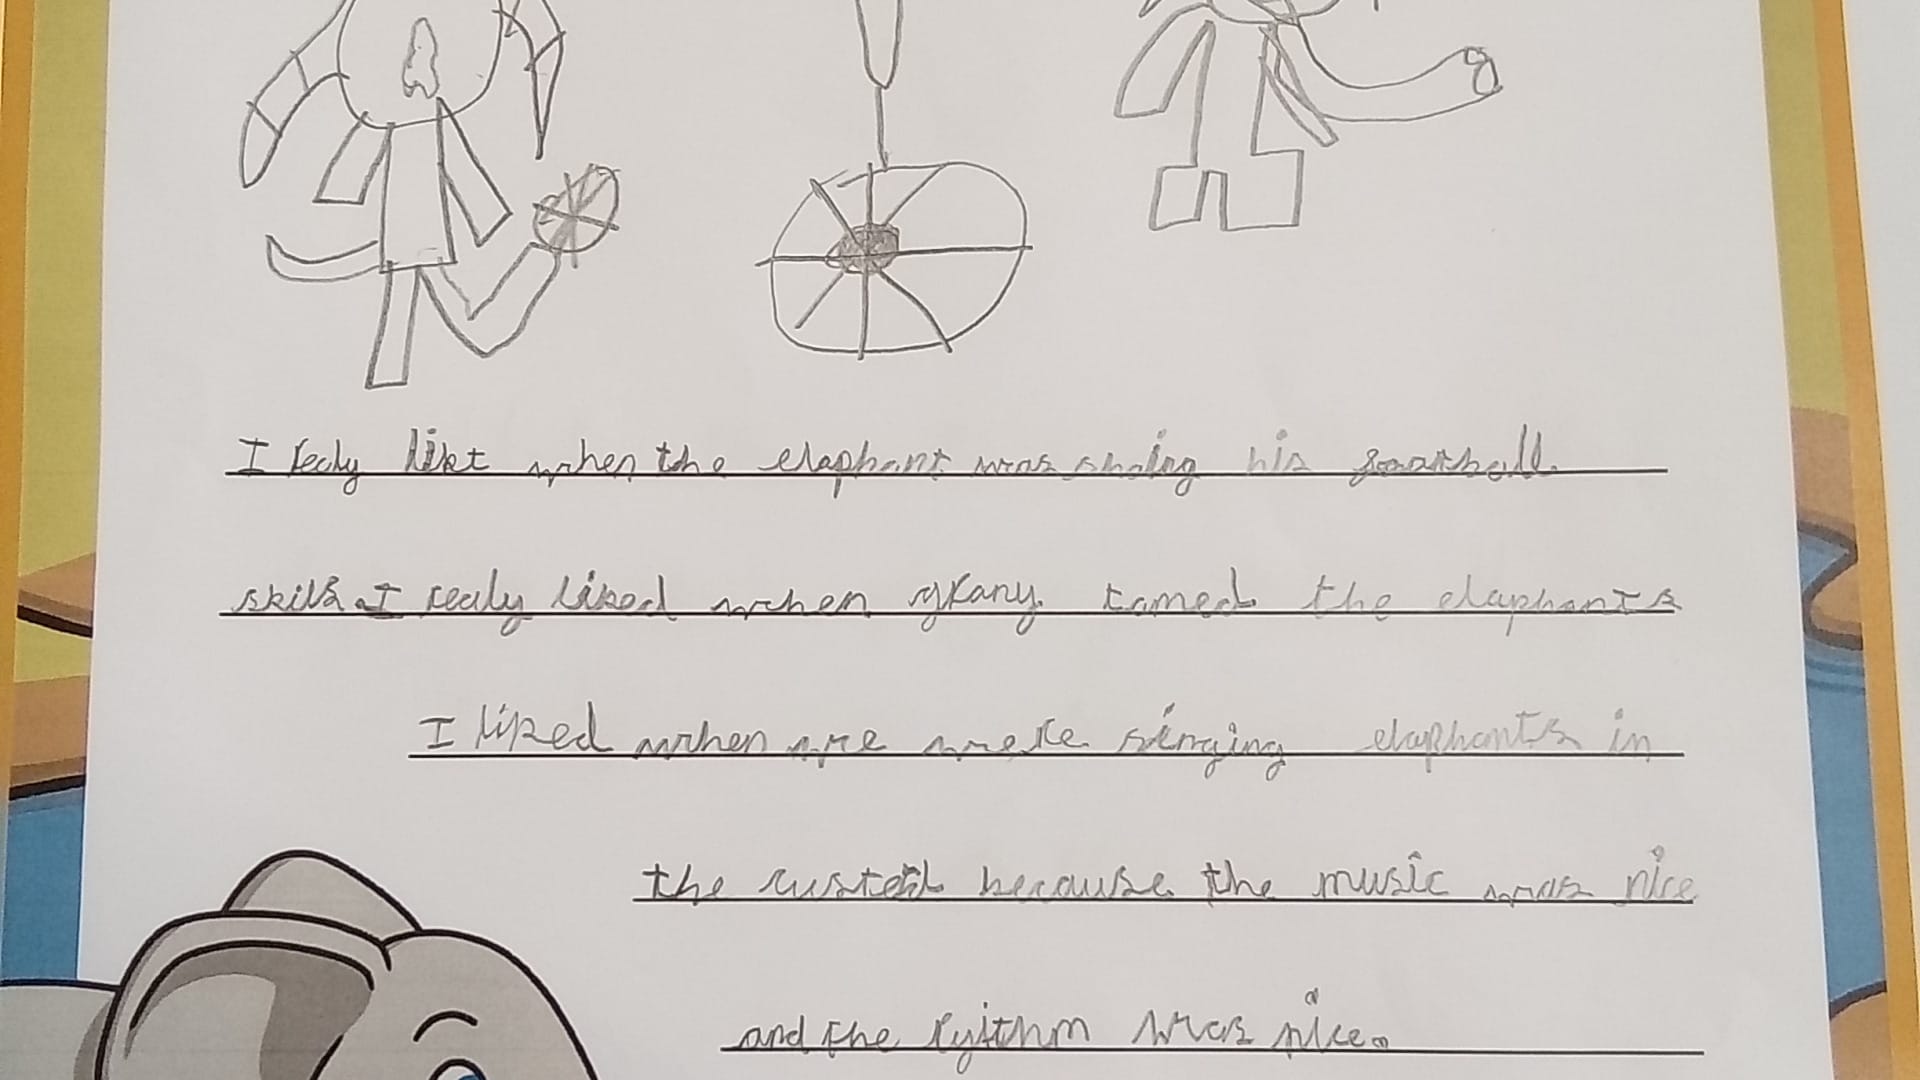 I realy likt when the elaphant was shoing his football
skills. I realy liked when grany tamed the elaphants
I liked when we were singing elaphants in
the custerd because the music was nice
and the rythm was nice.